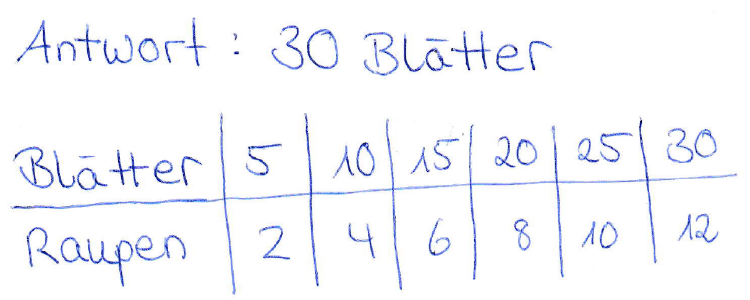 Antwort : 30 Blätter
Blätter 5 10 15 20 25 30
Raupen 2 4 6 8 10 12